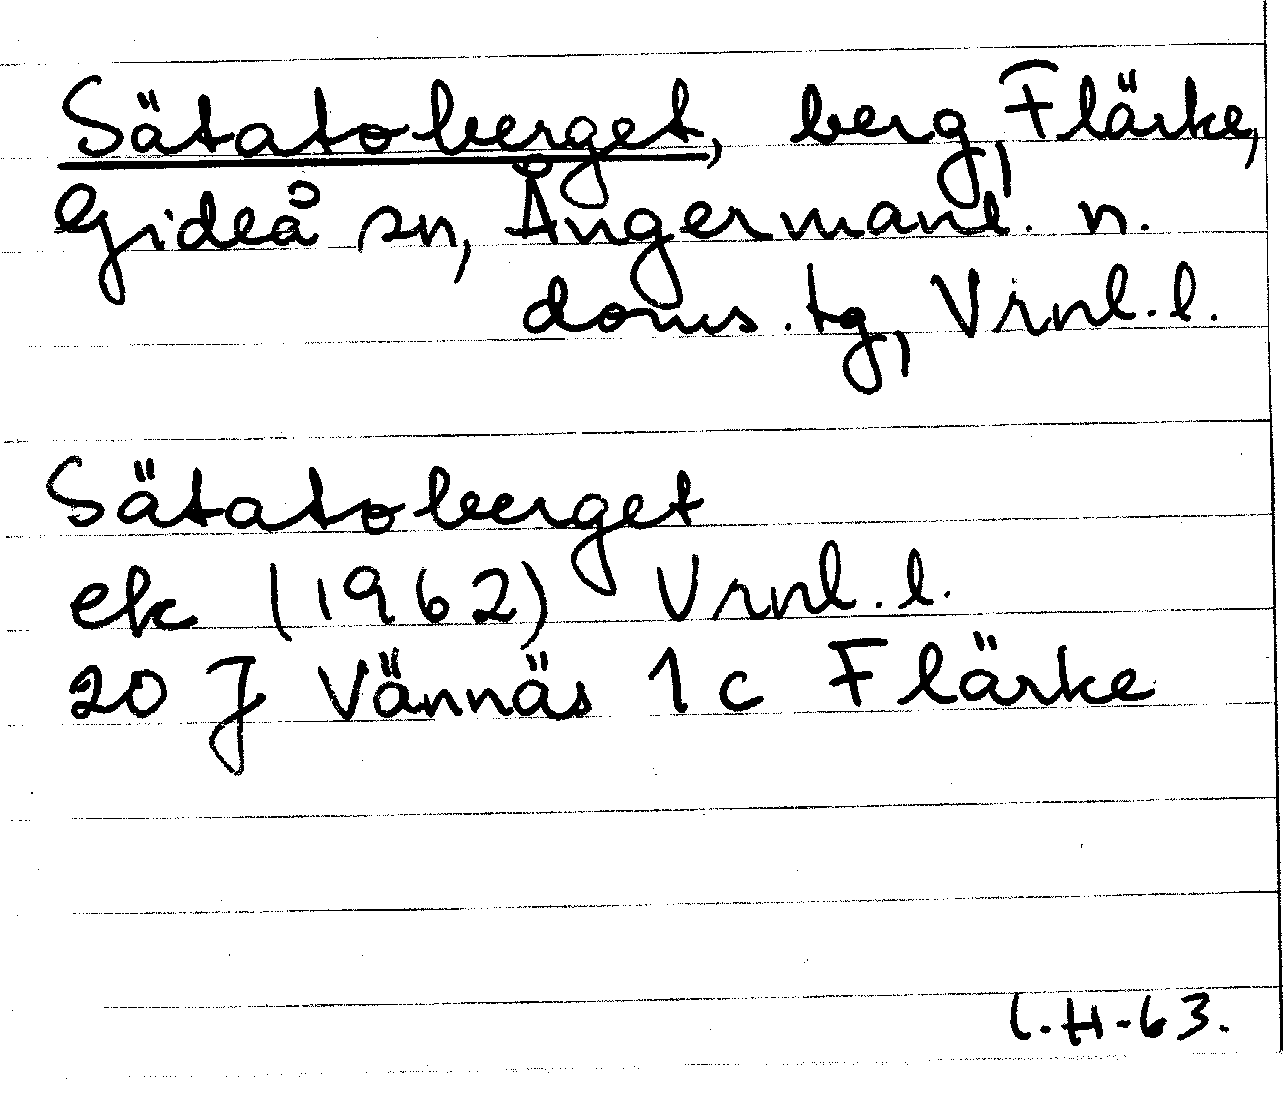 Sätatoberget, berg, Flärke,
Gideå sn, Ångermanl. n.
doms. tg, Vrnl. l.
Sätatoberget
ek (1962) Vrnl. l.
20 J Vännäs 1 c Flärke
C.H-63.